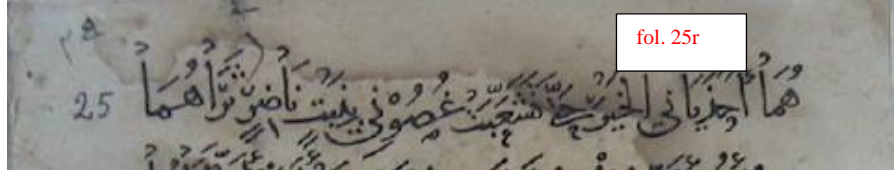 fol. 25r
٢٥
25
هُمَا أَحْذَيَانِي الخَيْرَ حَتَّى تَشَعَّبَتْ غُصُوْنِي بِنَبْتٍ نَاضِرٍ ثَرَاهُمَا